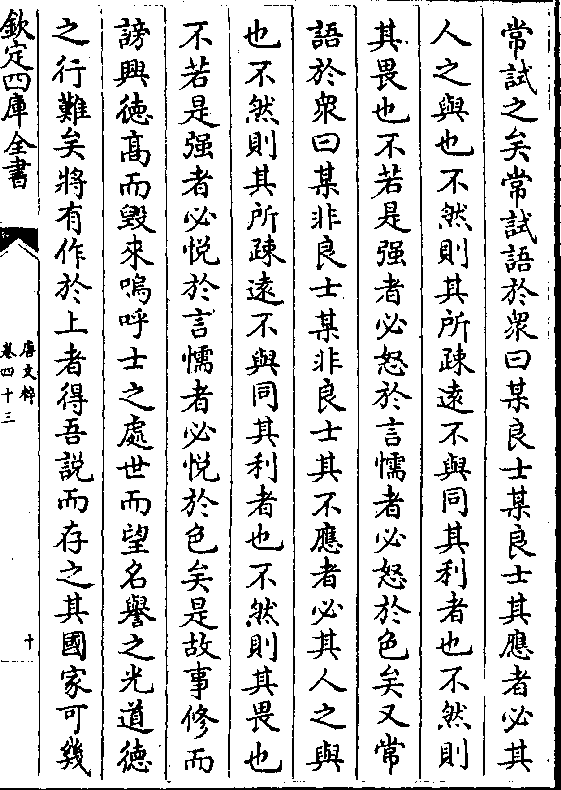 常試之矣常試語於衆曰某良士某良士其應者必其
人之與也不然則其所疎遠不與同其利者也不然則
其畏也不若是强者必怒於言懦者必怒於色矣又常
語於衆曰某非良士某非良士其不應者必其人之與
也不然則其所疎遠不與同其利者也不然則其畏也
不若是强者必悦於言懦者必悦於色矣是故事修而
謗興徳髙而毁來嗚呼士之處世而望名譽之光道徳
之行難矣將有作於上者得吾説而存之其國家可幾
欽定四庫全書
唐文粹
卷四十三
十